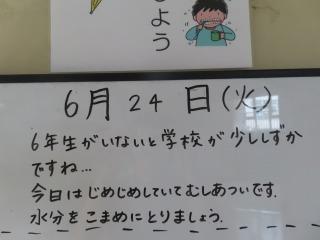 しょう
6月24日(火)
6年生がいないと学校が少ししずか
ですね…
今日はじめじめしていてむしあついです.
水分をこまめにとりましょう.